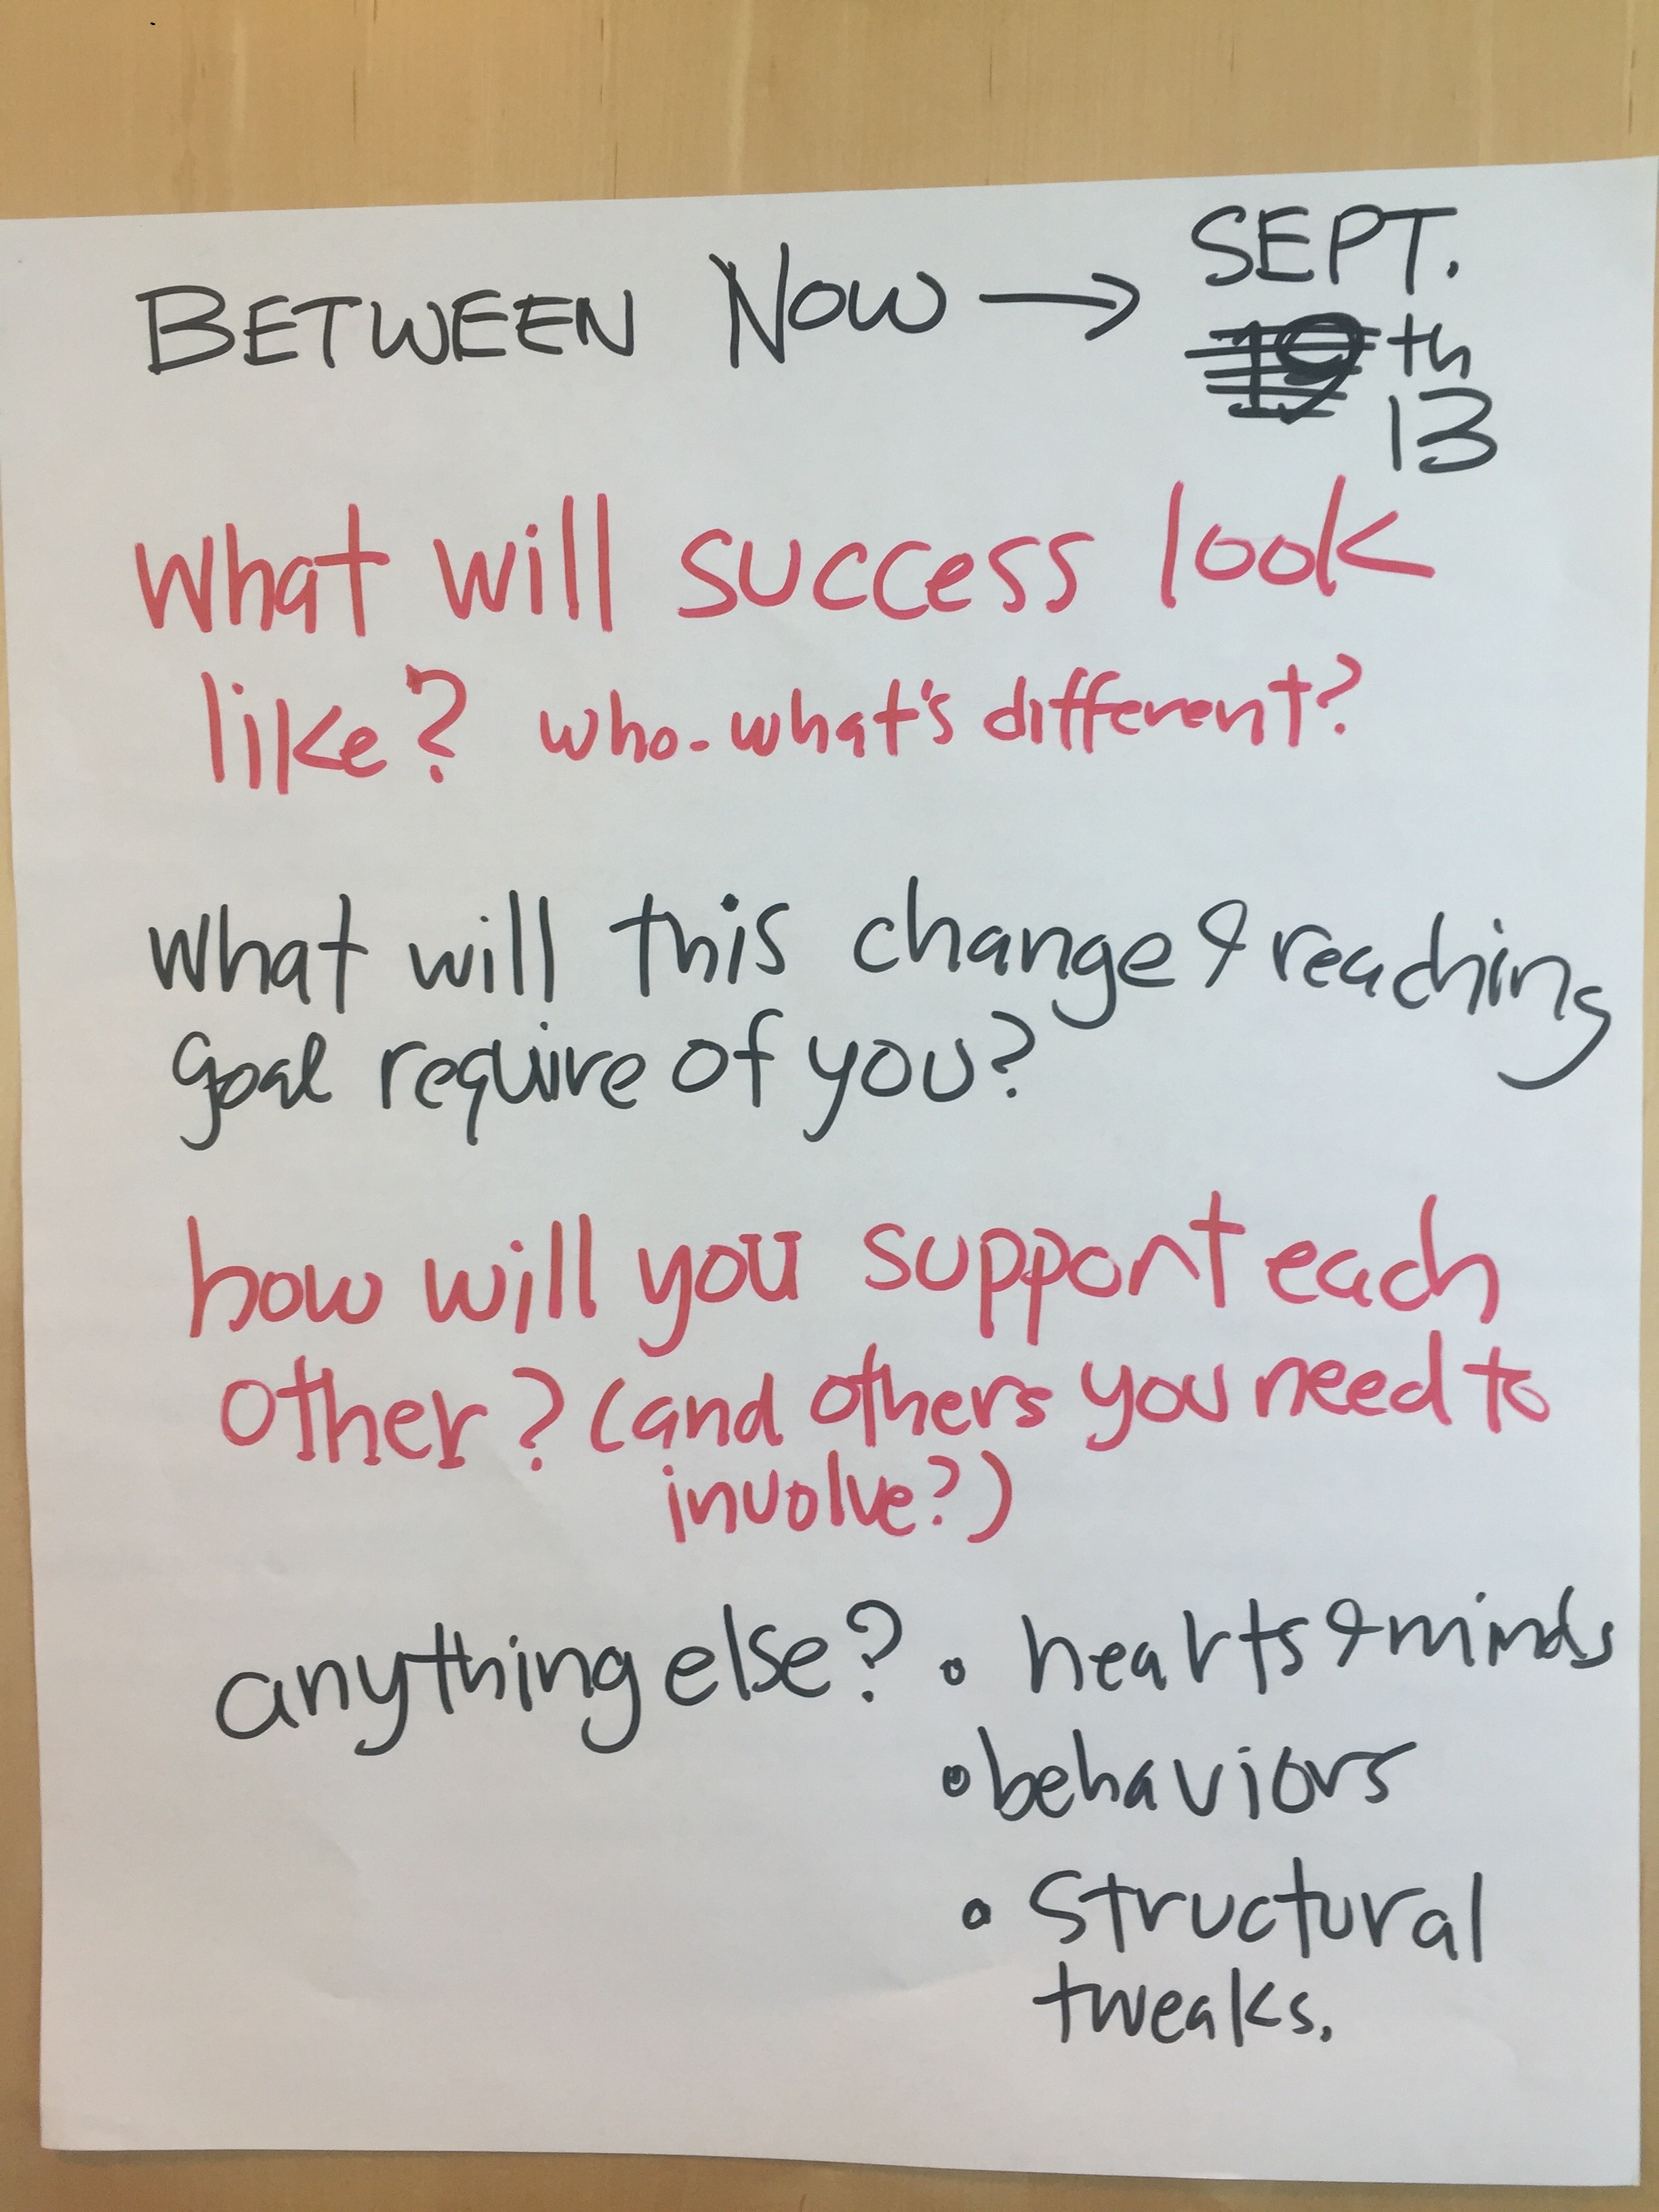 SEPT.
BETWEEN NOW →
19 th
13
what will success look
like? who-what's different?
what will this change & reaching
goal require of you?
how will you support each
other? (and others you need to
involve?)
anything else? • hearts & minds
• behaviors
• structural
tweaks.